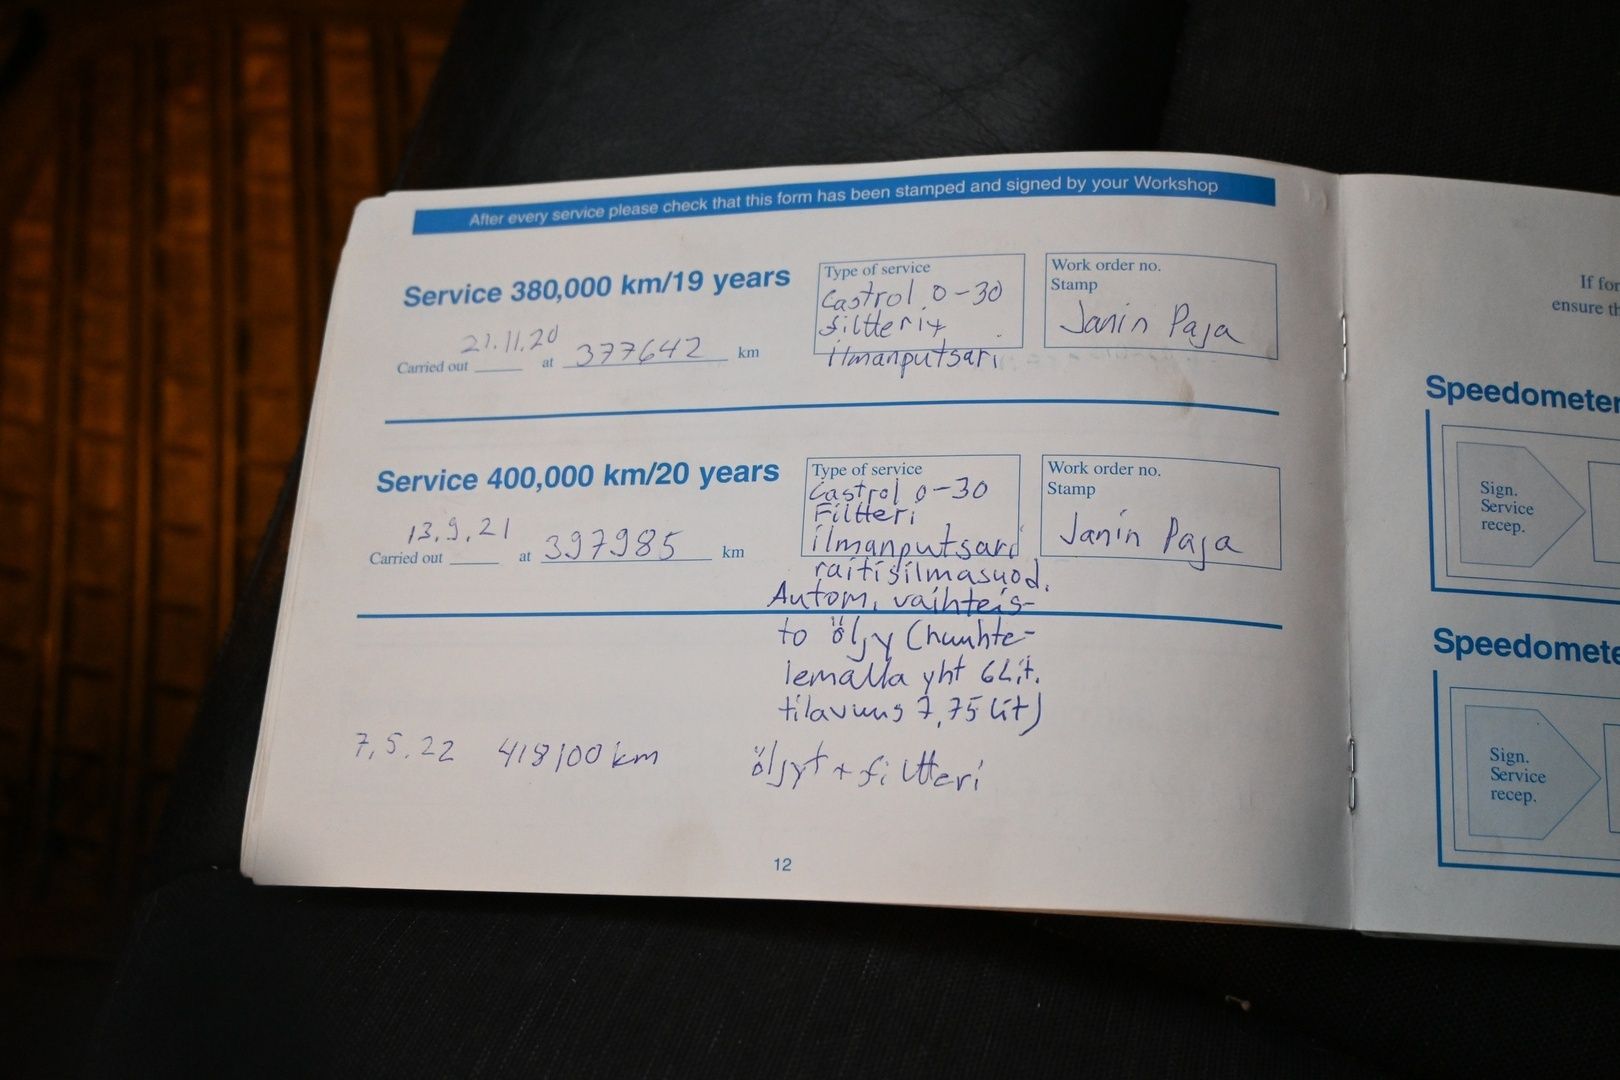 After every service please check that this form has been stamped and signed by your Workshop
Service 380,000 km/19 years
21.11.20
Carried out at 377642 km
Type of service
Castrol 0-30
filtteri +
ilmanputsari
Work order no.
Stamp
Janin Paja
Service 400,000 km/20 years
13.9.21
Carried out at 397985 km
Type of service
Castrol 0-30
Filtteri
ilmanputsari
raitisilmasuod.
Autom. vaihteis-
to öljy (huuhte-
lemalla yht 6 Lit.
tilavuus 7,75 lit)
Work order no.
Stamp
Janin Paja
7.5.22 418100 km öljyt + filtteri
12
If for
ensure th
Speedometer
Sign.
Service
recep.
Speedomete
Sign.
Service
recep.